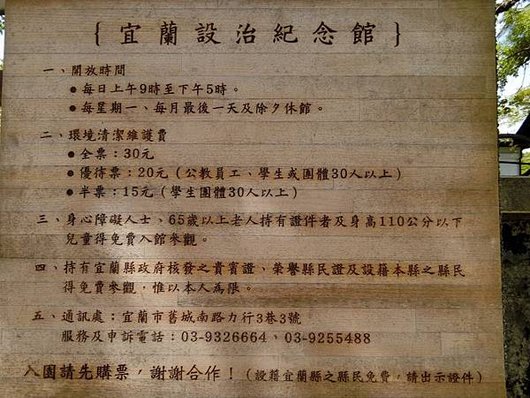 { 宜蘭設治紀念館 }
一、開放時間
●每日上午9時至下午5時。
●每星期一、每月最後一天及除夕休館。
二、環境清潔維護費
●全票：30元
●優待票：20元（公教員工、學生或團體30人以上）
●半票：15元（學生團體30人以上）
三、身心障礙人士、65歲以上老人持有證件者及身高110公分以下
兒童得免費入館參觀。
四、持有宜蘭縣政府核發之貴賓證、榮譽縣民證及設籍本縣之縣民
得免費參觀，惟以本人為限。
五、通訊處：宜蘭市舊城南路力行3巷3號
服務及申訴電話：03-9326664、03-9255488
入園請先購票，謝謝合作！（設籍宜蘭縣之縣民免費，請出示證件）